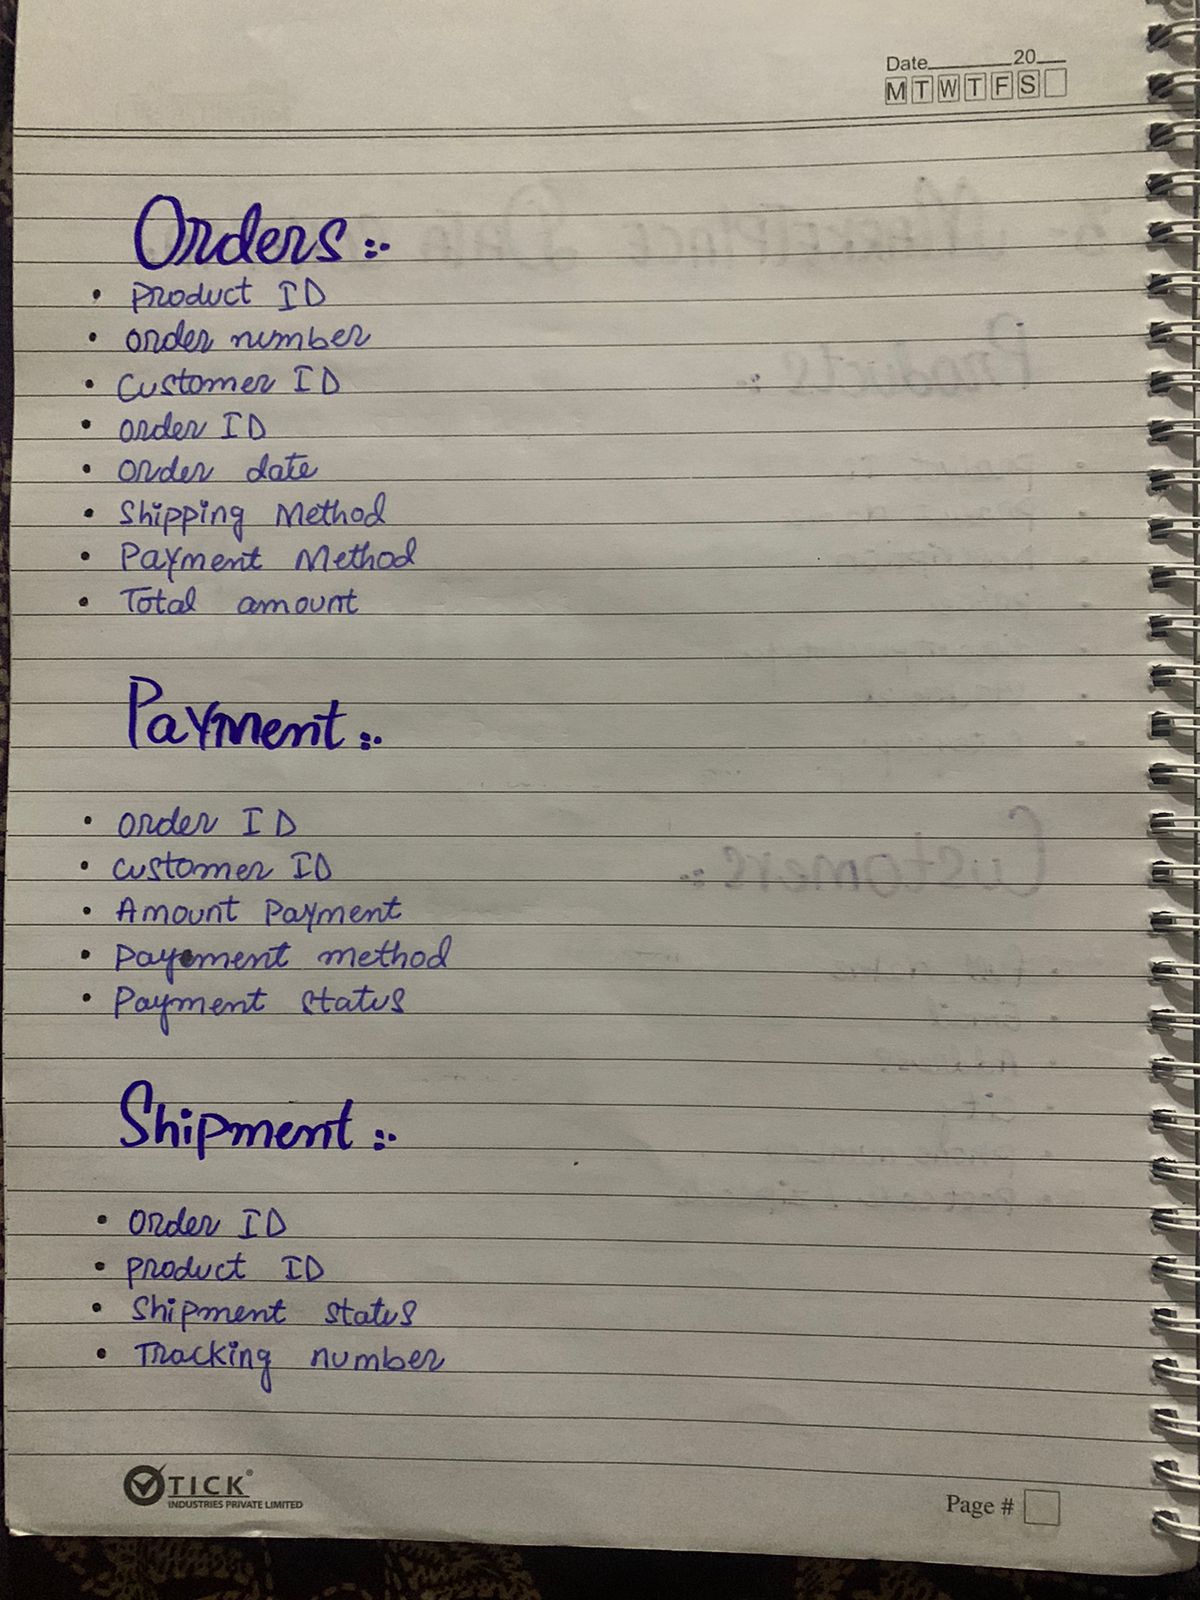 Date 20
M T W T F S
Orders :-
• Product ID
• order number
• Customer ID
• order ID
• order date
• Shipping Method
• Payment Method
• Total amount
Payment :-
• order ID
• customer ID
• Amount Payment
• Payement method
• Payment status
Shipment :-
• Order ID
• product ID
• Shipment status
• Tracking number
TICK®
INDUSTRIES PRIVATE LIMITED
Page #